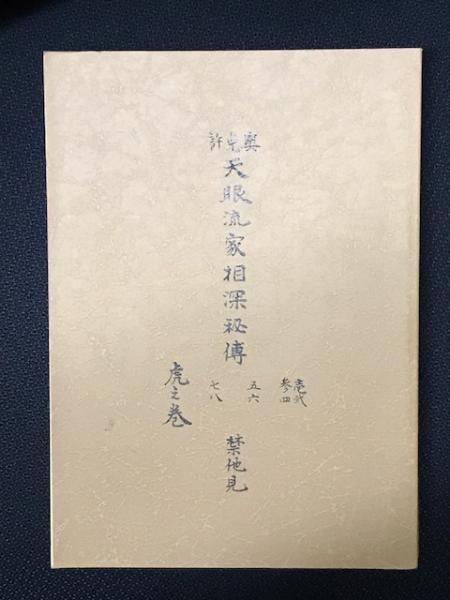 奥免許
天眼流家相深秘傳
壱弐
参四
五六
七八
禁他見
虎之巻